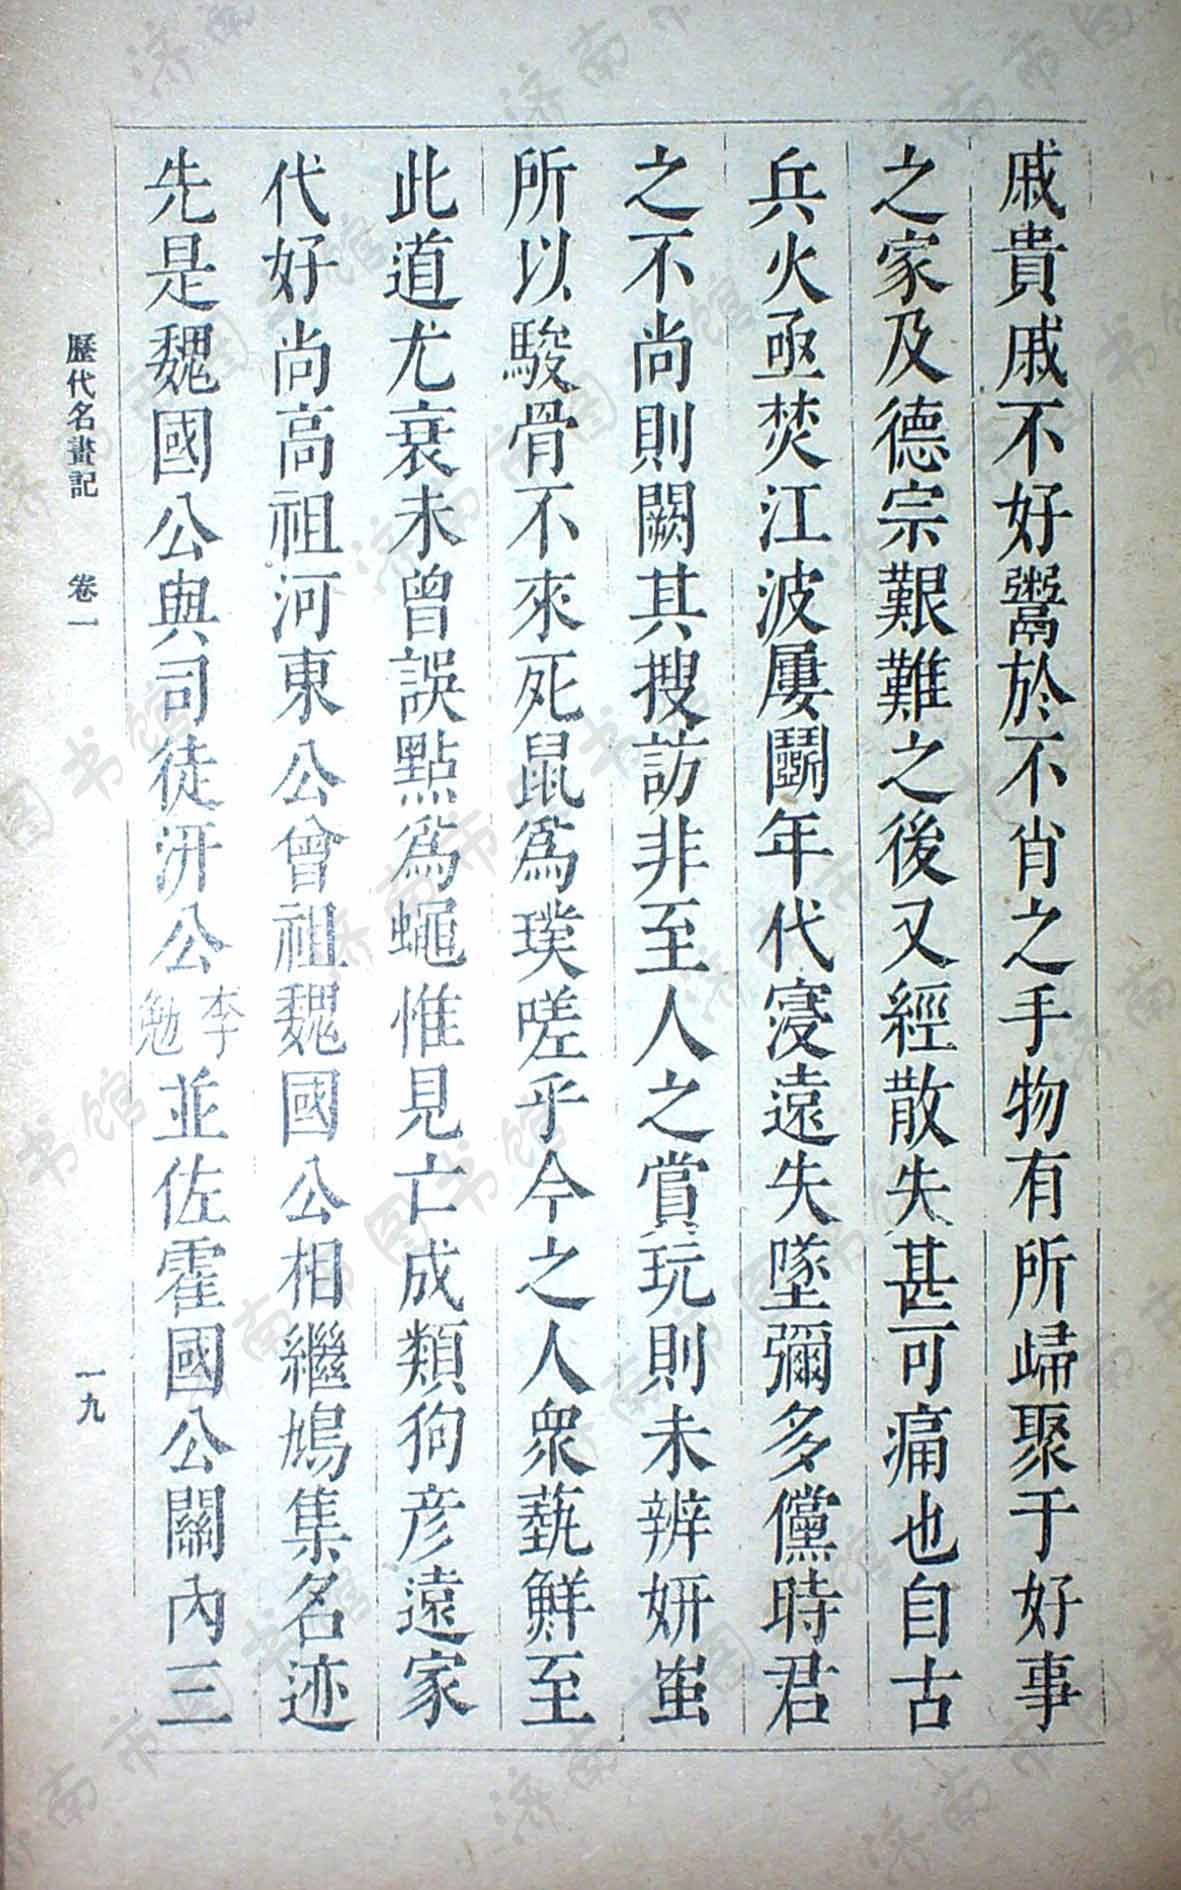 戚貴戚不好鬻於不肖之手物有所歸聚于好事
之家及德宗艱難之後又經散失甚可痛也自古
兵火亟焚江波屢鬭年代寖遠失墜彌多儻時君
之不尚則闕其搜訪非至人之賞玩則未辨妍蚩
所以駿骨不來死鼠爲璞嗟乎今之人衆藝鮮至
此道尤衰未曾誤點爲蠅惟見亡成類狗彦遠家
代好尚高祖河東公曾祖魏國公相繼鳩集名迹
先是魏國公與司徒汧公李勉並佐霍國公關內三
歷代名畫記 卷一 一九
济南市图书馆